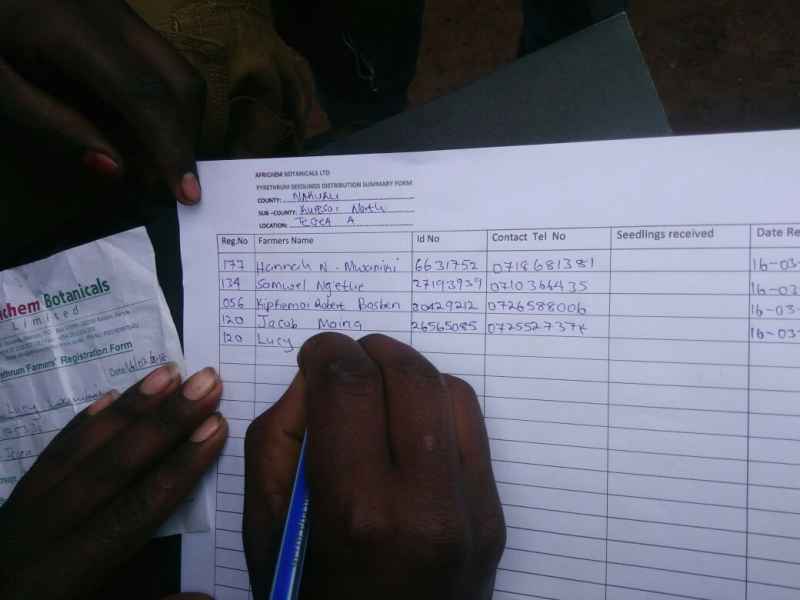 AFRICHEM BOTANICALS LTD
PYRETHRUM SEEDLINGS DISTRIBUTION SUMMARY FORM
COUNTY: NAKURU
SUB-COUNTY: Kuresoi North
LOCATION: A
Reg.No Farmers Name Id No Contact Tel No Seedlings received Date Re
177 Hannah N. 6631752 0718681381 16-03-
134 Samwel Ngetich 27193939 0710366435 16-03-
056 Kipkemoi Robert 20429212 0726588006 16-03-
120 Jacob Maina 26565085 0725527374 16-03-
120 Lucy
ichem Botanicals
Limited
ethrum Farmers' Registration Form
Date
Lucy